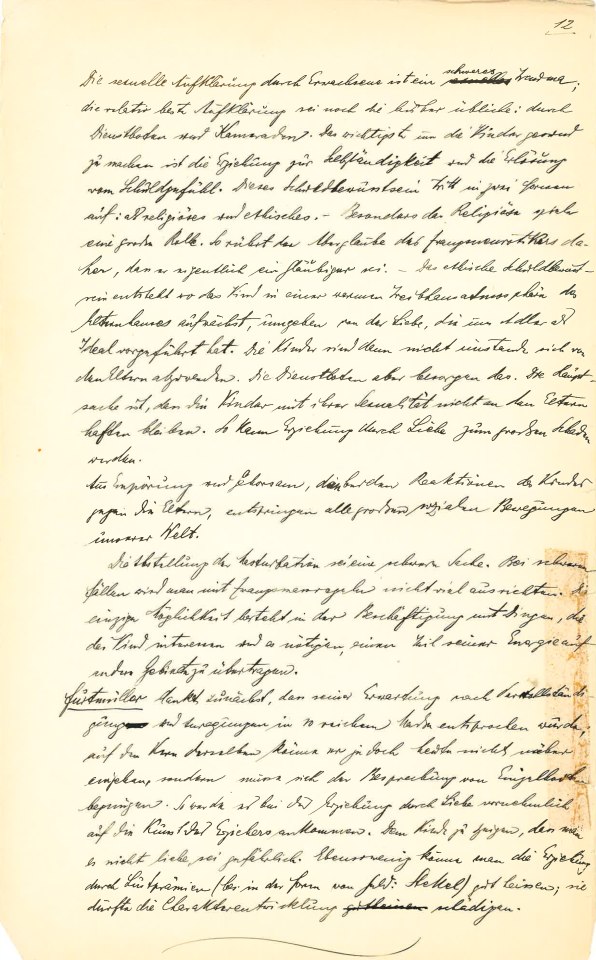 12.
Die sexuelle Aufklärung durch Erwachsene ist ein schweres Trauma;
die relativ beste Aufklärung sei noch die bisher übliche: durch
Dienstboten und Kameraden. Das wichtigste um die Kinder gesund
zu machen ist die Erziehung zur Selbständigkeit und die Erlösung
vom Schuldgefühl. Dieses Schuldbewusstsein tritt in zwei Formen
auf: als religiöses und ethisches. – Besonders das Religiöse spiele
eine grosse Rolle. So rührt der Aberglaube des Zwangsneurotikers da-
her, dass er eigentlich ein Gläubiger sei. – Das ethische Schuldbewusst-
sein entsteht wo das Kind in einer warmen Treibhausatmosphäre des
Elternhauses aufwächst, umgeben von der Liebe, die uns Adler als
Ideal vorgeführt hat. Die Kinder sind dann nicht imstande sich von
den Eltern abzuwenden. Die Dienstboten aber besorgen das. Die Haupt-
sache ist, dass die Kinder mit ihrer Sexualität nicht an den Eltern
haften bleiben. So kann Erziehung durch Liebe zum grossen Schaden
werden.
Aus Empörung und Gehorsam, den beiden Reaktionen des Kindes
gegen die Eltern, entspringen alle grossen sozialen Bewegungen
unserer Welt.
Die Abstellung der Masturbation sei eine schwere Sache. Bei schweren
Fällen wird man mit Zwangsmassregeln nicht viel ausrichten. Die
einzige Möglichkeit besteht in der Beschäftigung mit Dingen, die
das Kind interessieren und es nötigen, einen Teil seiner Energie auf
andere Gebiete zu übertragen.
Furtmüller dankt zunächst, dass seiner Erwartung nach Vervollständi-
gung und Anregungen in so reichem Masse entsprochen wurde;
auf den Kern derselben könne er jedoch heute nicht näher
eingehen, sondern müsse sich der Besprechung von Einzelheiten
begnügen. So werde es bei der Erziehung durch Liebe vornehmlich
auf die Kunst des Erziehers ankommen. Dem Kinde zu zeigen, dass man
es nicht liebe, sei gefährlich. Ebensowenig könne man die Erziehung
durch Lustprämien (sei in der Form von Geld: Stekel) gut heissen; sie
dürfte die Charakterentwicklung schädigen.